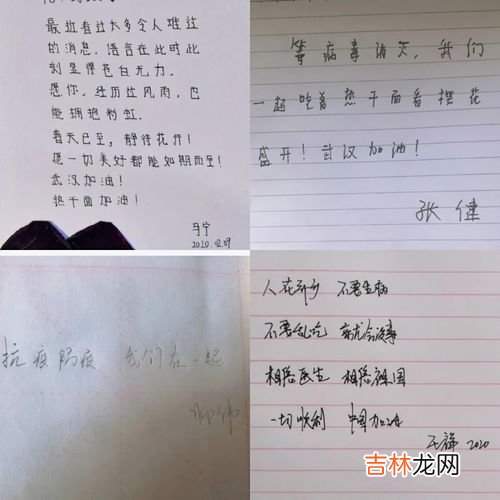 最近看过太多令人难过
的消息，语言在此时此
刻显得苍白无力。
愿你，经历过风雨，也
能拥抱彩虹。
春天已至，静待花开！
愿一切美好都能如期而至！
武汉加油！
热干面加油！
马宁
2020.02.09
等病毒消灭，我们
一起吃着热干面看樱花
盛开！武汉加油！
张健
抗疫防疫 我们在一起
人在 不要生病
不要乱吃 就会没事
相信医生 相信祖国
一切顺利 中国加油
王 2020
吉林龙网